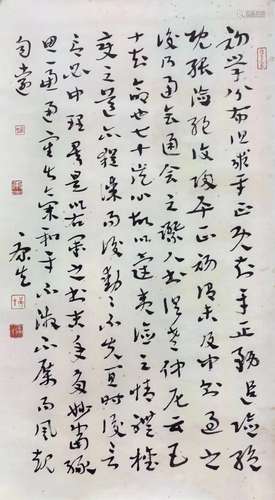 初學分布但求平正既知平正務追險絕
既能險絕復歸平正初謂未及中則過之
後乃通會通會之際人書俱老仲尼云五
十知命也七十從心故以達夷險之情體權
變之道亦猶謀而後動動不失宜時然後言
言必中理矣是以右軍之書末年多妙當緣
思慮通審志氣和平不激不厲而風規
自遠
康生